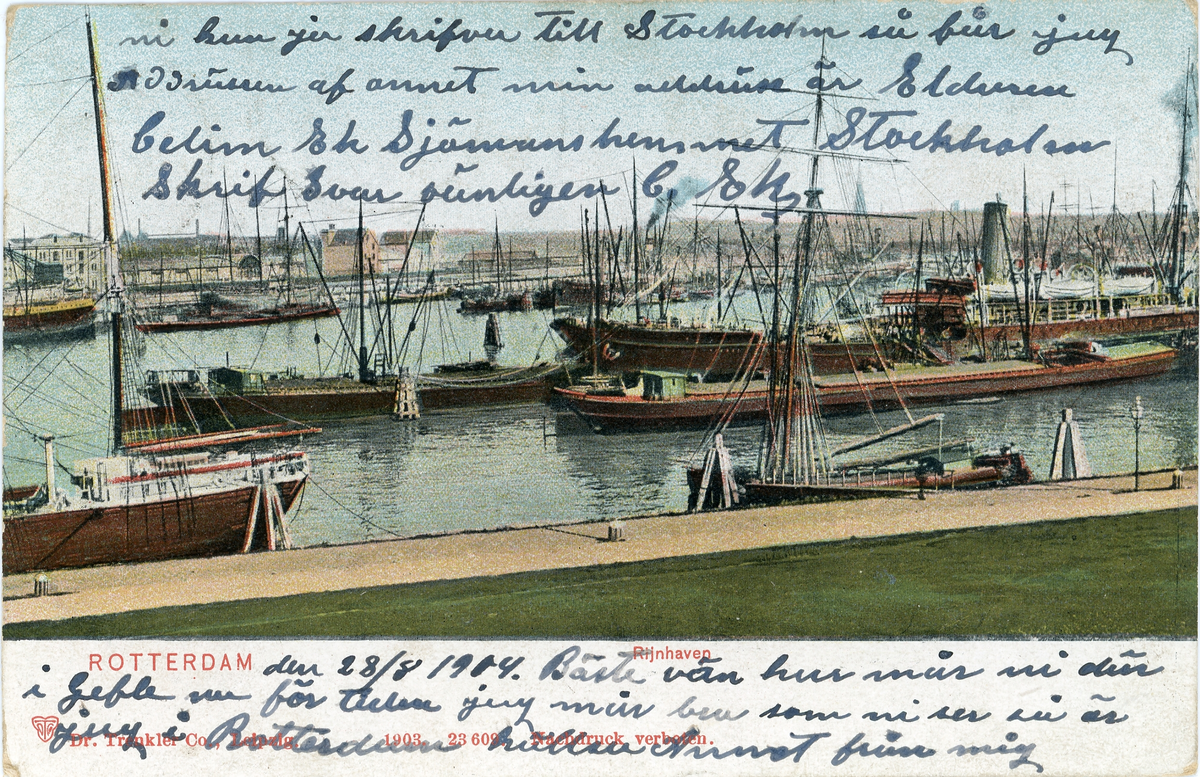 ni kan ju skrifva till Stockholm så får jag
Addressen af annet min address är Eldaren
Celim Ek Sjömanshemmet Stockholm
Skrif Svar vänligen C Ek
ROTTERDAM Rijnhaven
den 28/8 1904. Bäste vän hur mår ni där
i Gefle nu för tiden jag mår bra som ni ser så är
jag i Rotterdam annat från mig
Dr. Trenkler Co., Leipzig. 1903. 23 609 Nachdruck verboten.